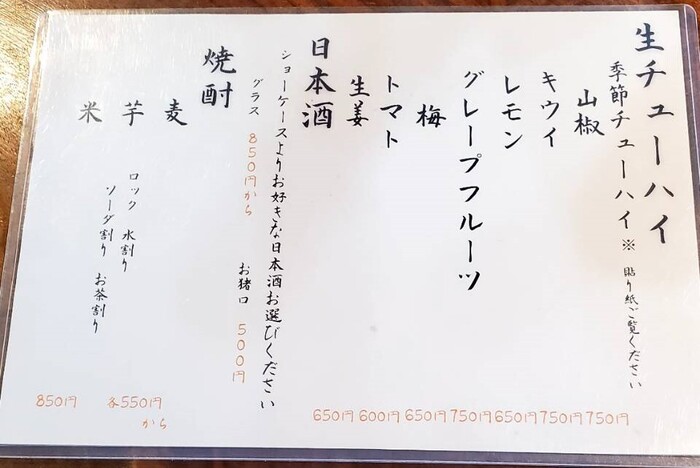 生チューハイ
季節チューハイ※ 貼り紙ご覧ください
山椒 750円
キウイ 750円
レモン 650円
グレープフルーツ 750円
梅 650円
トマト 600円
生姜 650円
日本酒
ショーケースよりお好きな日本酒お選びください
グラス 850円から お猪口 500円
焼酎
麦
芋
米
ロック 水割り
ソーダ割り お茶割り
各550円
から
850円